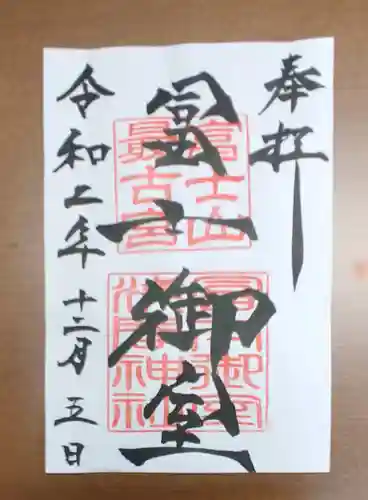 奉拝
冨士御室
富士山
最古宮
冨士御室
浅間神社
令和二年十二月五日